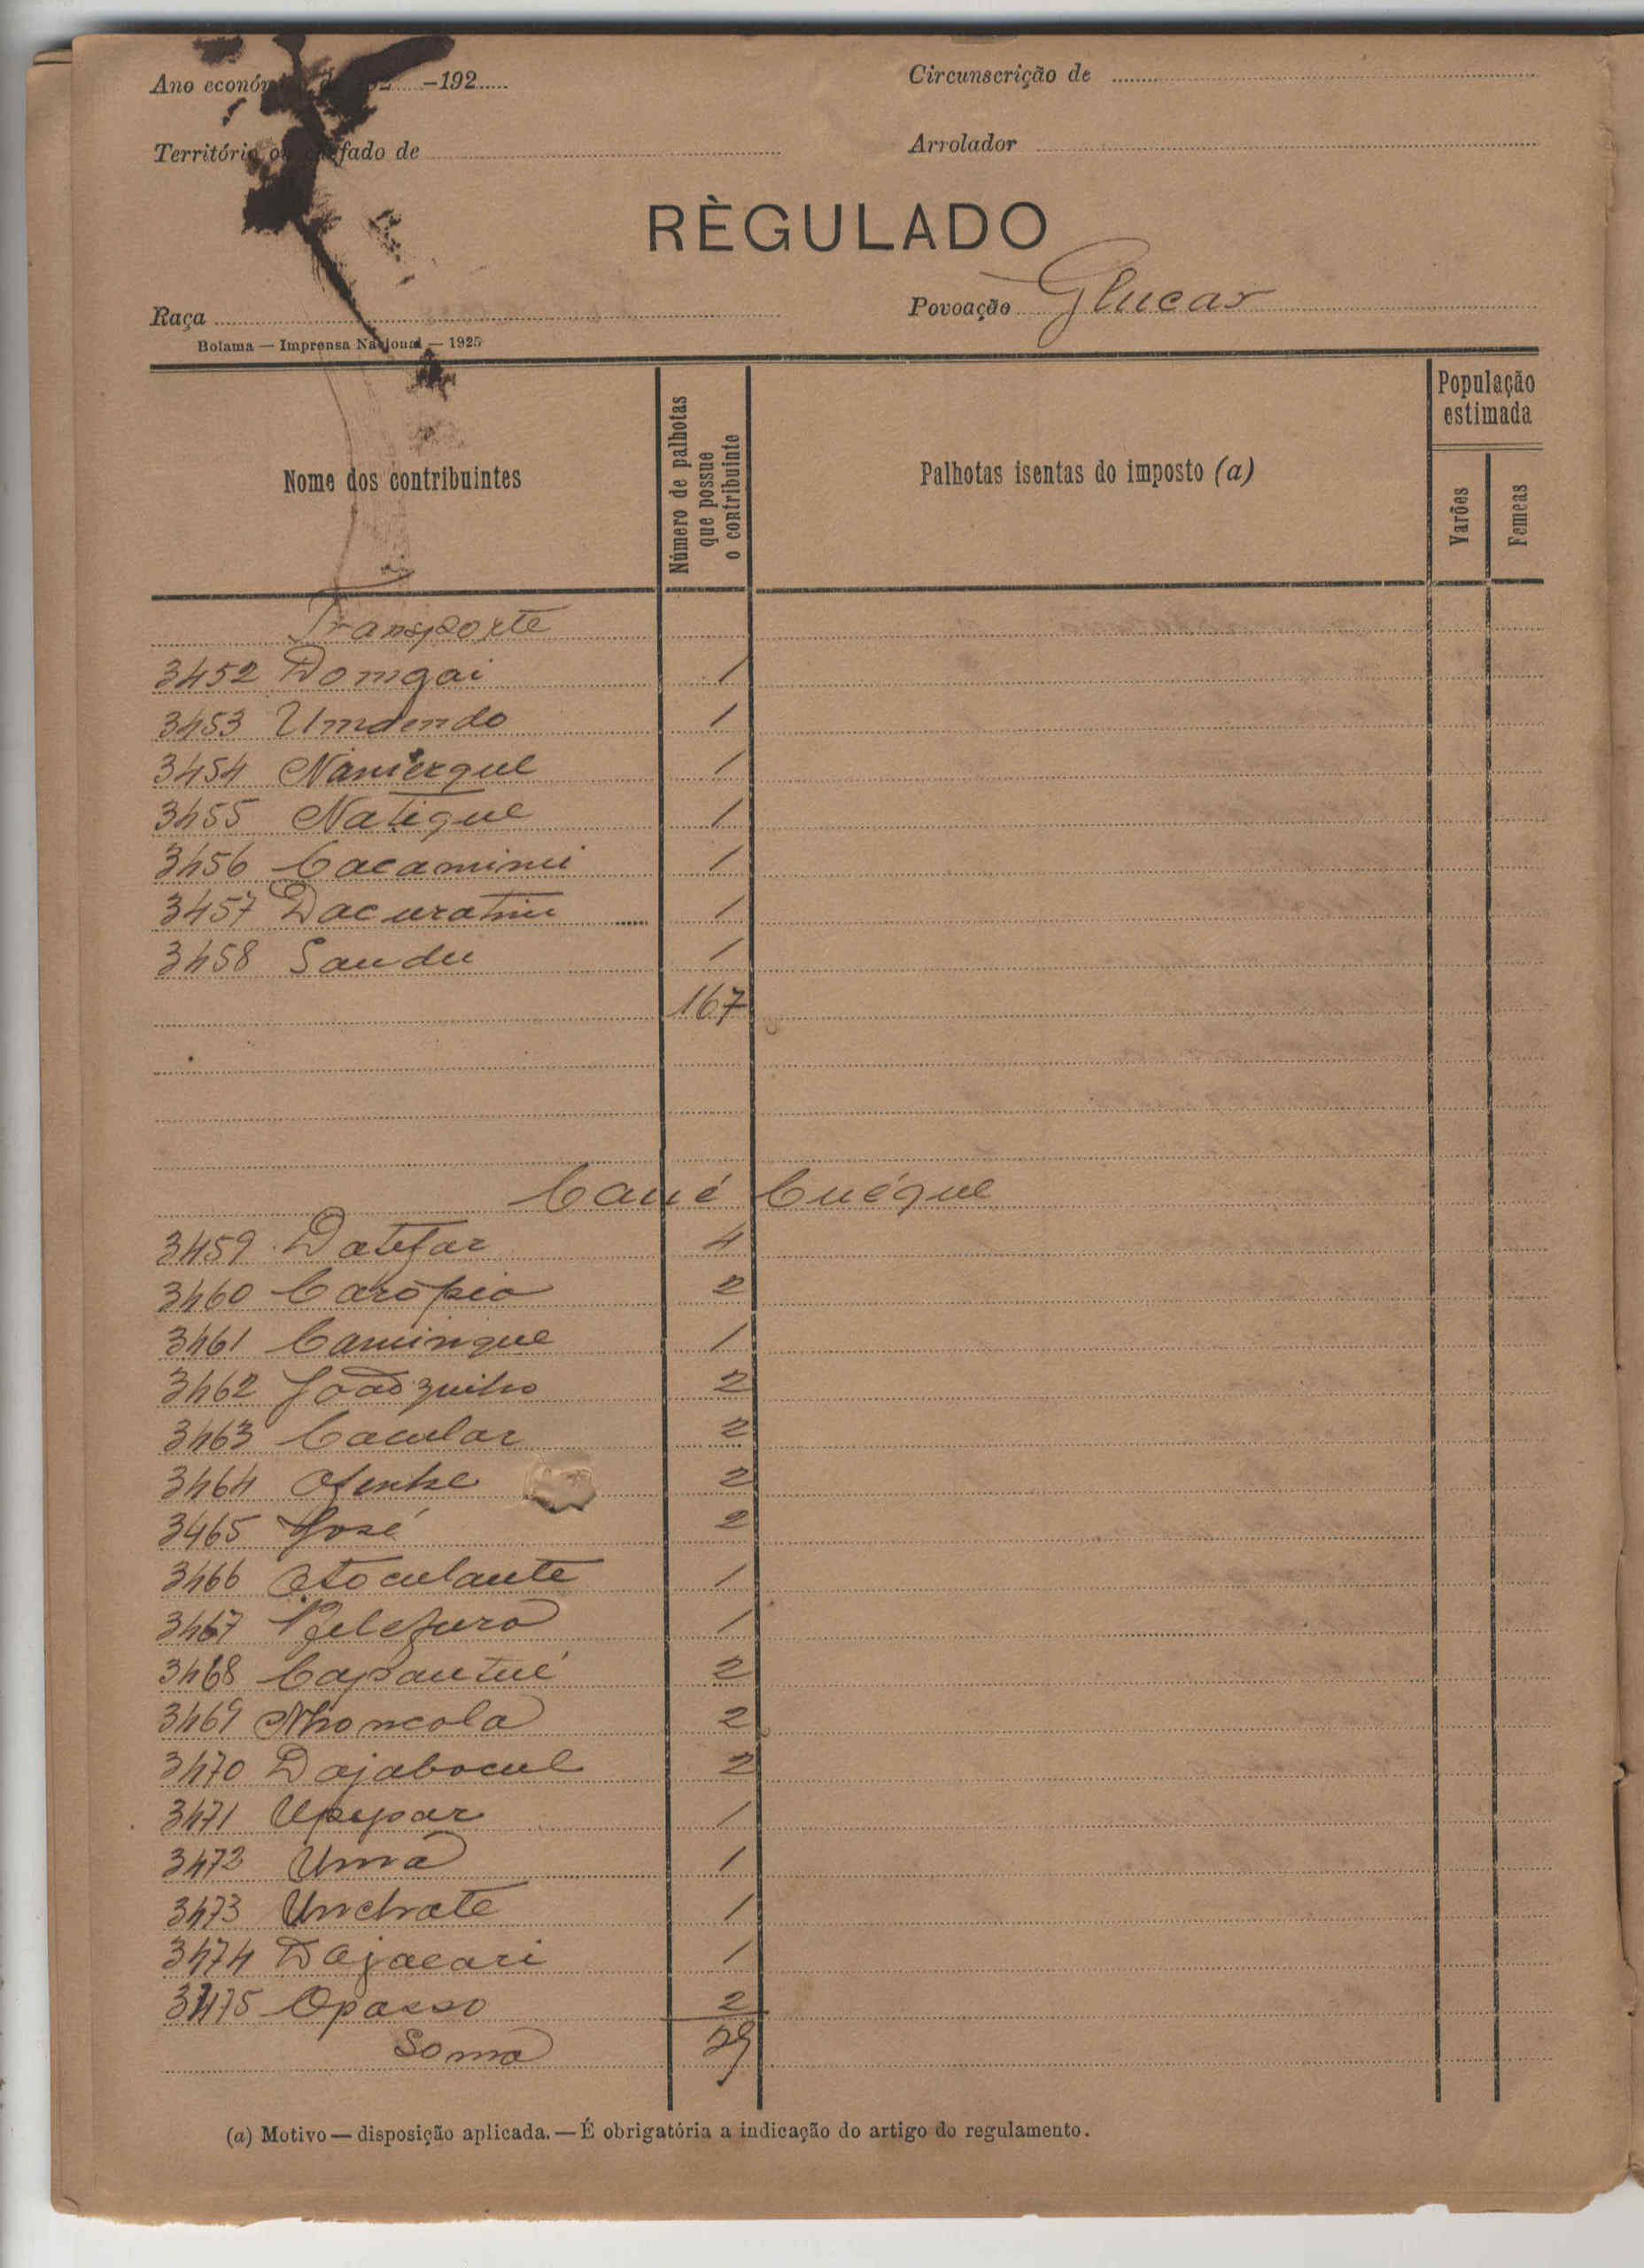 Ano económ de 192 –192
Circunscrição de
Território o fado de
Arrolador
RÈGULADO
Raça
Povoação Glucar
Bolama — Imprensa Nacional — 1925
Nome dos contribuintes
Número de palhotas que possue o contribuinte
Palhotas isentas do imposto (a)
População estimada
Varões
Femeas
Transporte
3452 Domgai 1
3453 Umdendo 1
3454 1
3455 Natique 1
3456 Cacamimi 1
3457 1
3458 Sandu 1
167
Caué Cuéque
3459 Datefar 4
3460 Carópia 2
3461 Camingue 1
3462 Joãozinho 2
3463 Cacular 2
3464 2
3465 José 2
3466 1
3467 1
3468 Capantué 2
3469 Nhoncola 2
3470 Dajabocul 2
3471 Upepar 1
3472 Uma 1
3473 Unchate 1
3474 Dajacari 1
3475 Opasso 2
Soma 29
(a) Motivo — disposição aplicada. — É obrigatória a indicação do artigo do regulamento.